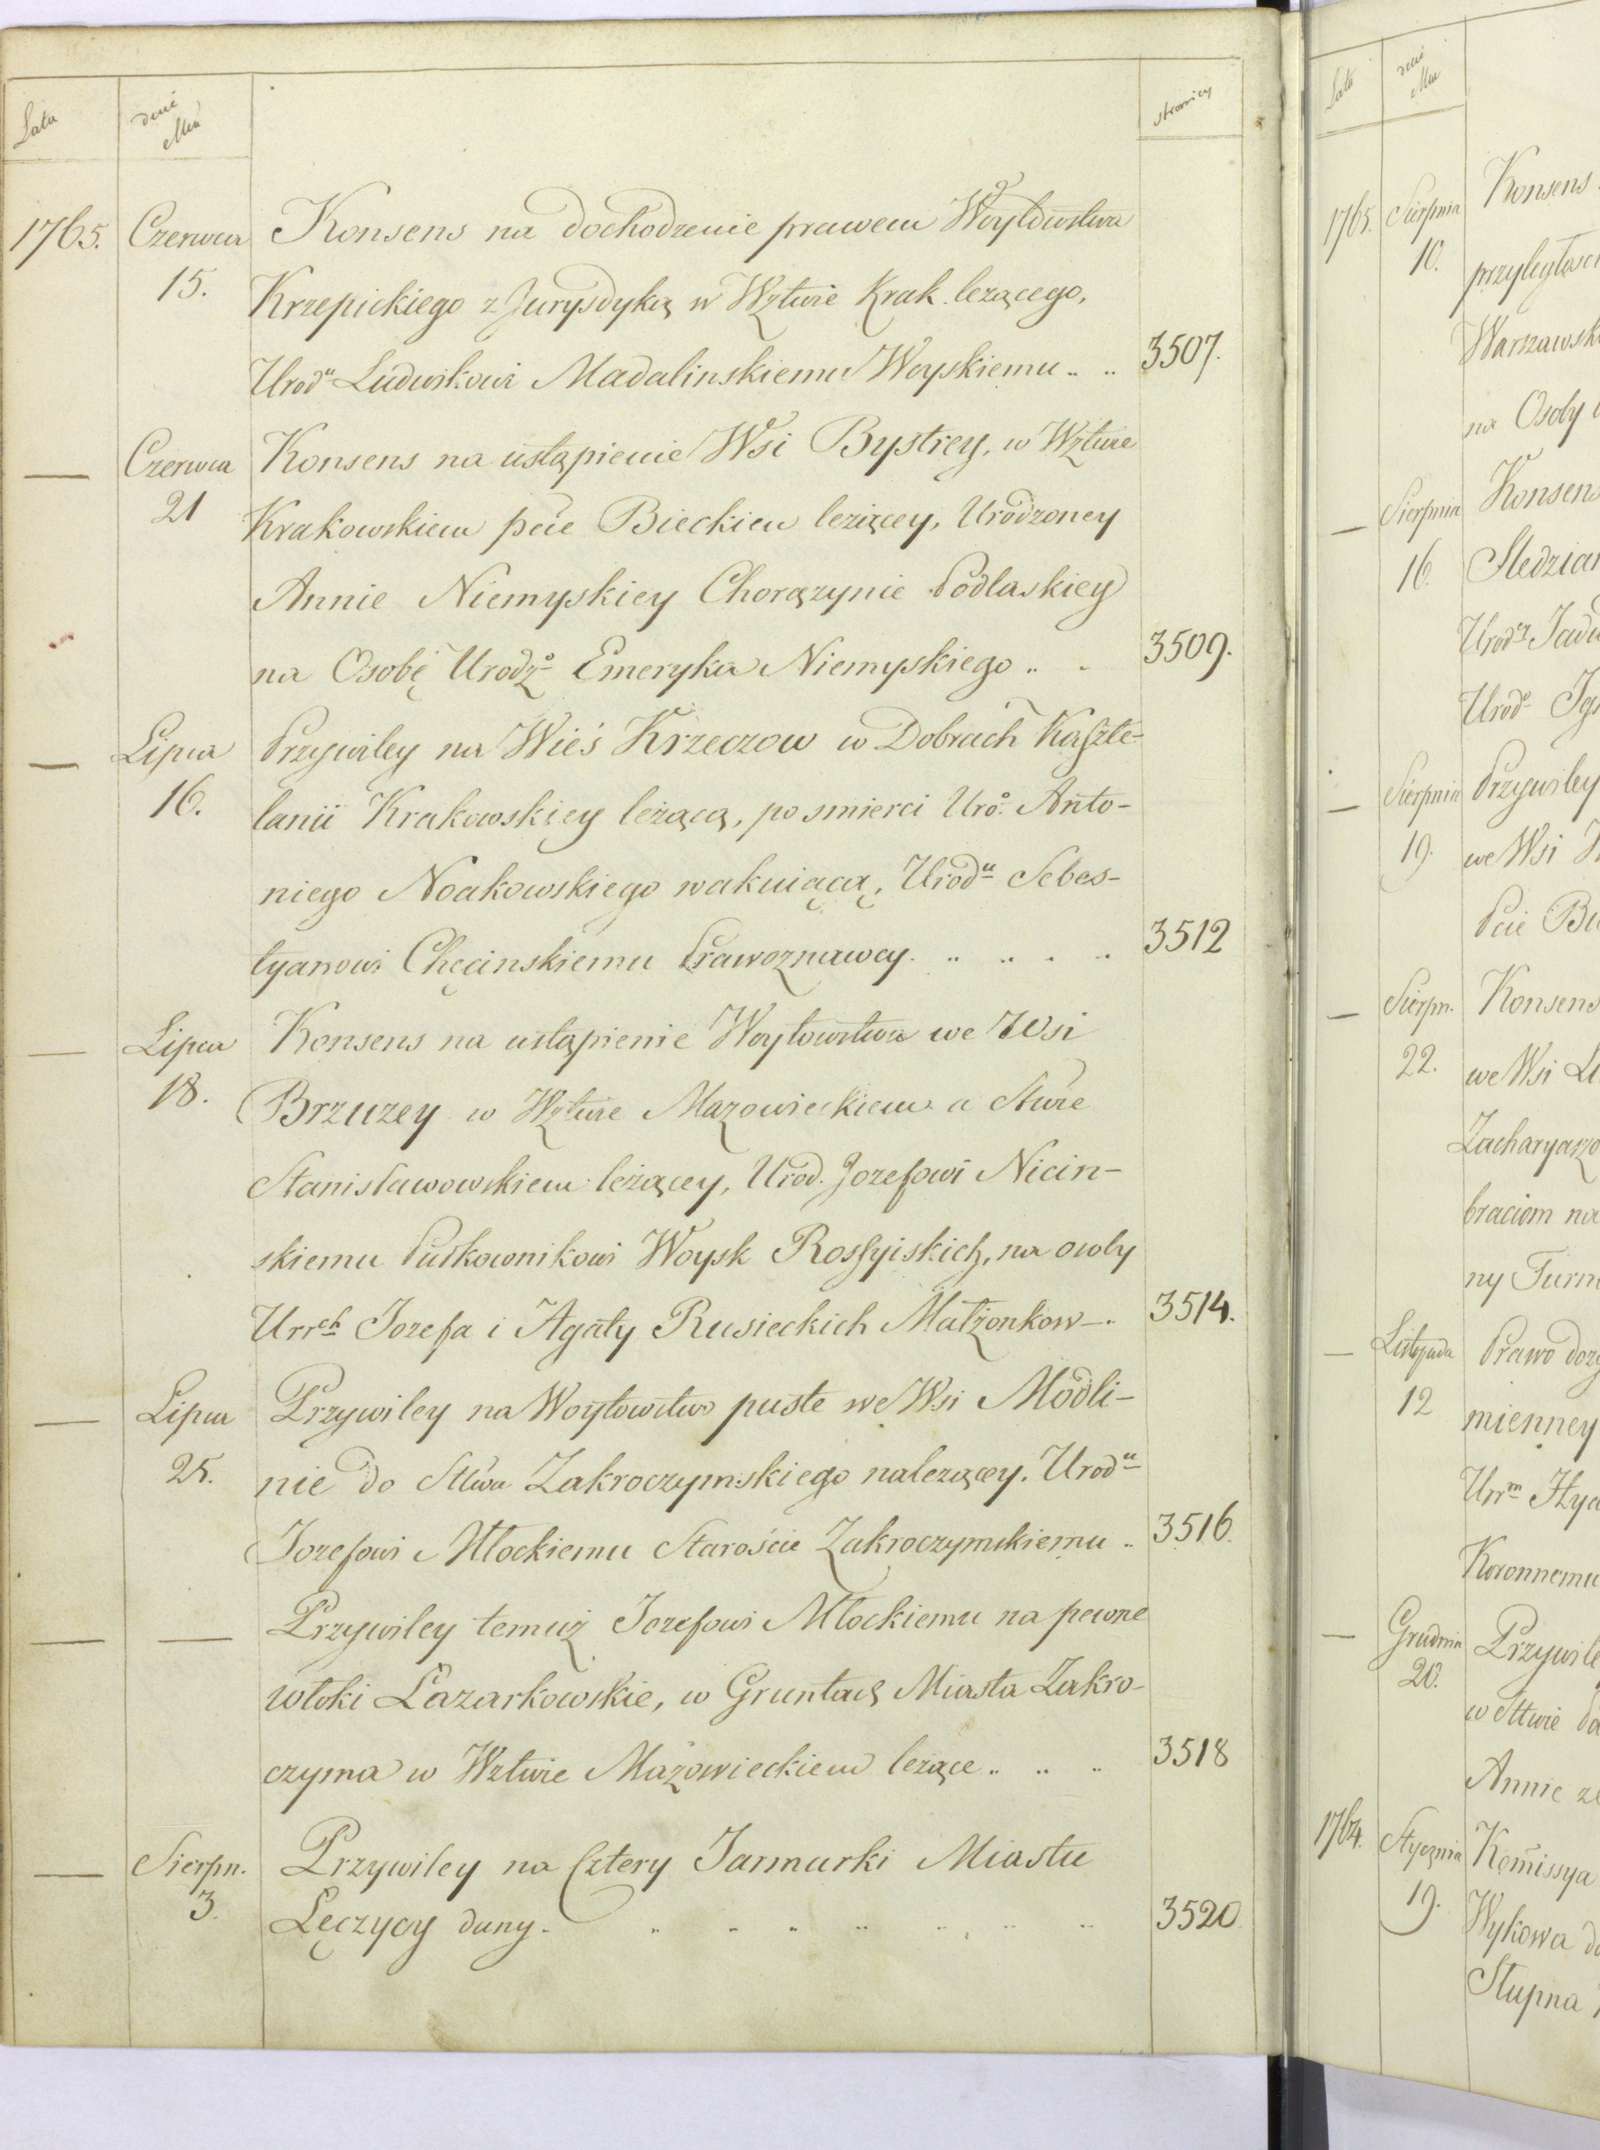 Lata
dnie
Mca
stronicy
1765.
Czerwca
15.
Konsens na dochodzenie prawem Woytowstwa
Krzepickiego z Jurysdyką w Wztwie Krak. leżącego,
Urodu Ludwikowi Madalinskiemu Woyskiemu .. ..
3507.
— Czerwca
21
Konsens na ustąpienie Wsi Bystrey, w Wztwie
Krakowskiem pcie Bieckiem leżący, Urodzoney
Annie Niemyskiey Chorążynie Podlaskiey
na Osobę Urodzo Emeryka Niemyskiego .. .
3509.
— Lipca
16.
Przywiley na Wieś Krzeczow w Dobrach Kaszte-
lanii Krakowskiey leżącą, po smierci Uro. Anto-
niego Noakowskiego wakuiącą, Urodu Sebes-
tyanowi Chęcinskiemu Prawoznawcy. .. .. . ..
3512
— Lipca
18.
Konsens na ustąpienie Woytowstwa we Wsi
Brzuzey w Wztwie Mazowieckiem a Stwie
Stanisławowskiem leżącey, Urod. Jozefowi Nicin-
skiemu Pułkownikowi Woysk Rossyiskich, na osoby
Urrch Jozefa i Agaty Rusieckich Małżonkow —.
3514.
— Lipca
25.
Przywiley na Woytowstwo puste we Wsi Modli-
nie do Sttwa Zakroczymskiego należącey. Urodu
Jozefowi Młockiemu Staroście Zakroczymskiemu ..
3516.
— —
Przywiley temuż Jozefowi Młockiemu na pewne
włoki Łazarkowskie, w Gruntach Miasta Zakro-
czyma w Wztwie Mazowieckiem leżące .. .. ..
3518
— Sierpn.
3.
Przywiley na Cztery Jarmarki Miastu
Łęczycy dany.
3520
Lata
dnie
Mca
1765.
Sierpnia
10.
Konsens
przyległosci
Warszawsk
na Osoby
— Sierpnia
16.
Konsens
Sledzian
Urodz
Urodo
— Sierpnia
19.
Przywiley
we Wsi
Pcie
— Sierpn.
22.
Konsens
we Wsi
Zacharyaszo
braciom na
ny Furm
— Listopada
12
Prawo doży
mienney
Urrm Hya
Koronnemu
— Grudnia
20.
Przywile
w Sttwie
Annie
1764.
Stycznia
19.
Komissya
Wykowa do
Słupna